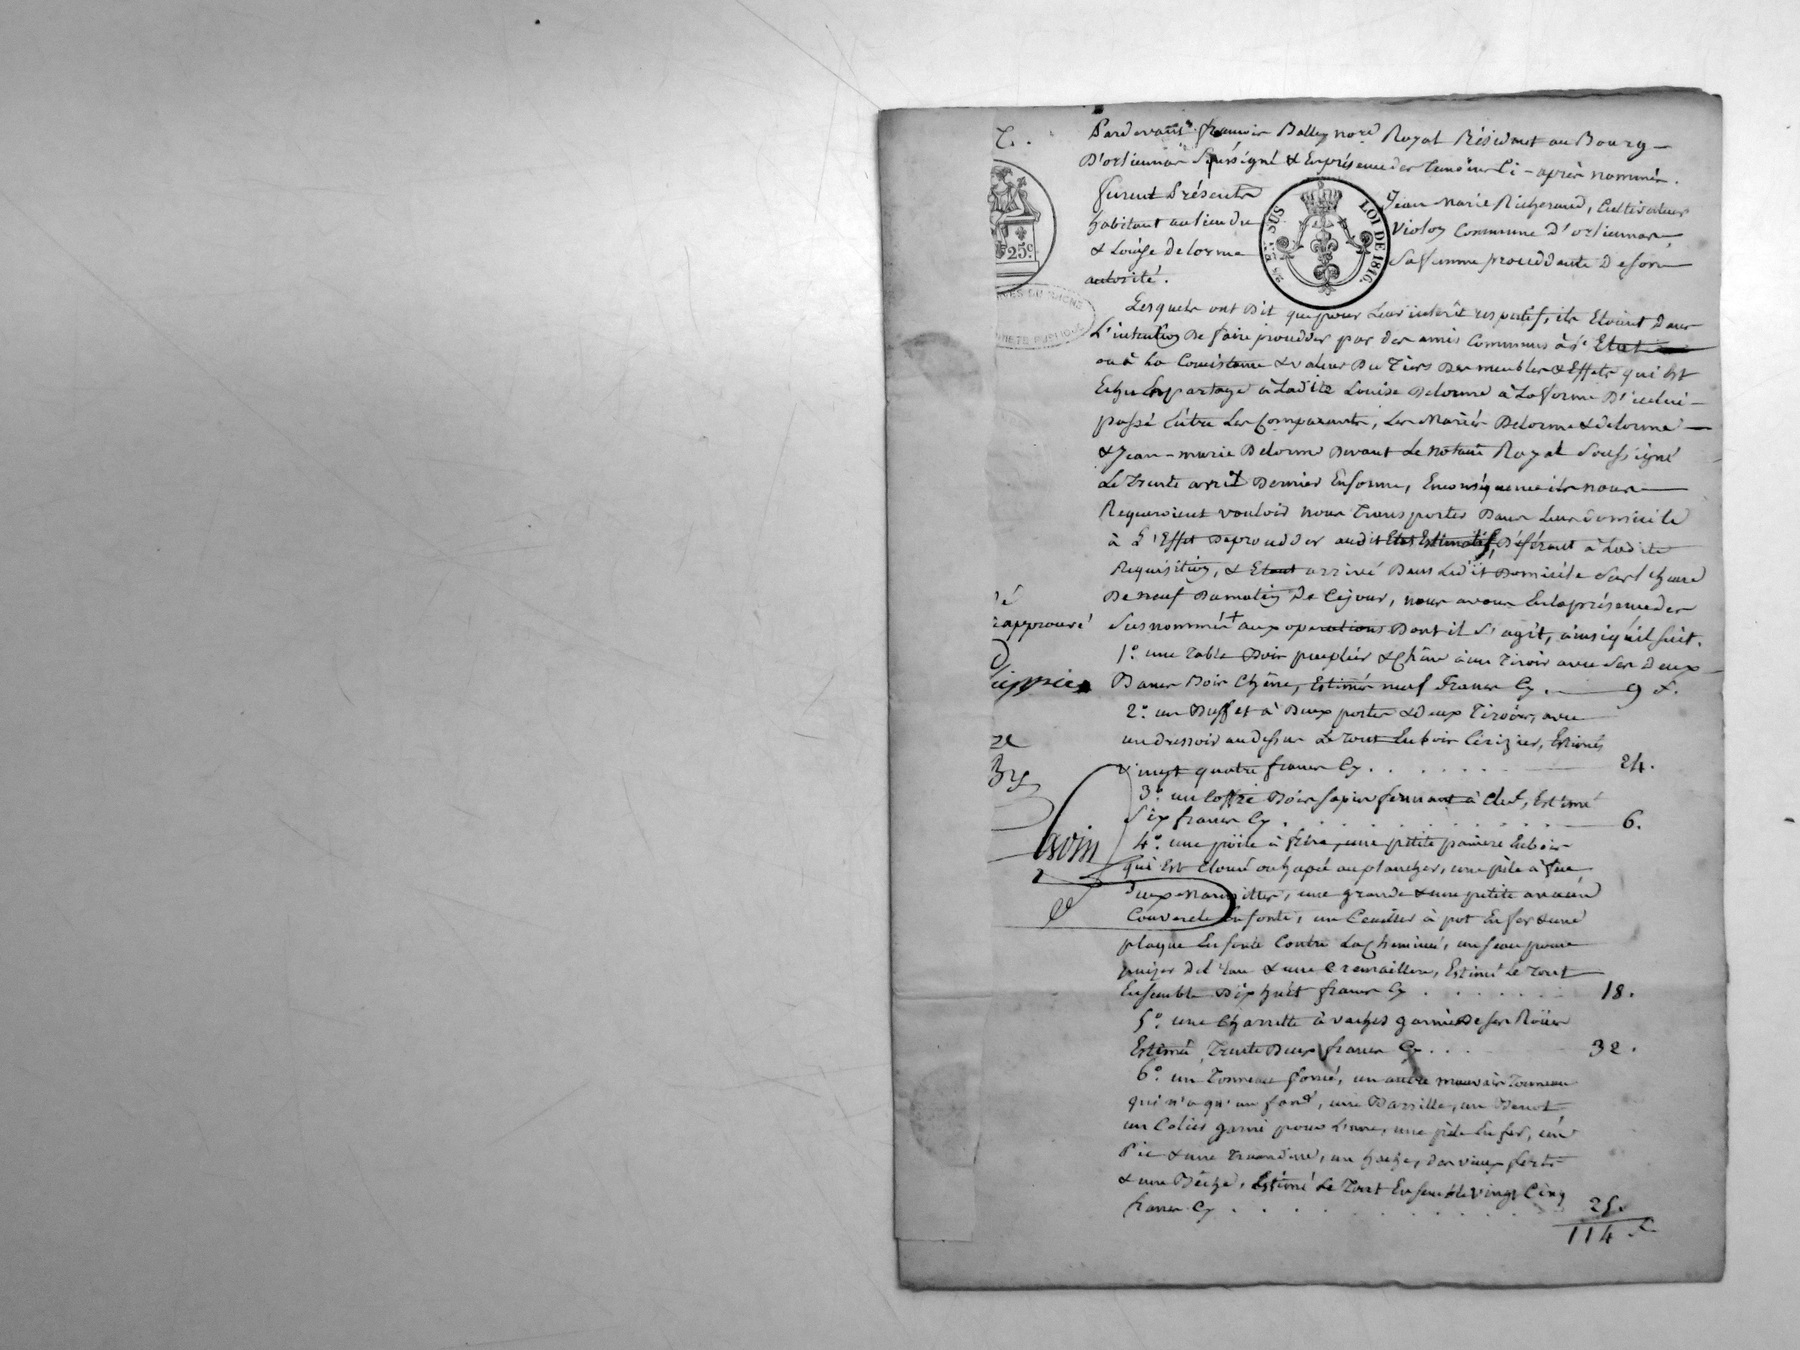 Pardevant françois Balley no.re Royal Résidant au Bourg
D'orliennas soussigné & En présence des Témoins Ci-après nommés.
furent Présents Jean Marie Richeraud, Cultivateur
habitant au lieu du Violoy Commune D'orliennas,
& Louise Delorme Sa femme procédante De son
autorité.
LOI DE 1816.
25 Ct. SUS
25c.
Lesquels ont Dit que pour Leur intérêt respectif, ils Etoient Dans
L'intention De faire procéder par des amis Communs à l' Etat
ou à La Consistance & valeur Du Tiers Des meubles & Effets qui Est
Echu En partage à Ladite Louise Delorme à La forme D'icelui
passé Entre Les Comparants, Les Mariés Delorme & Delorme
& Jean-marie Delorme Devant Le Notaire Royal Soussigné
Le Trente avril Dernier En forme, En conséquence ils nous
Requeroient vouloir nous Transporter Dans Leur Domicile
à L'Effet De procéder audit Etat Estimatif, Déférant à Ladite
Requisition, & Etant arrivé Dans Ledit Domicile Sur l'heure
De neuf Du matin De Cejour, nous avons En la présence des
Susnommés + aux operations Dont il S'agit, ainsi qu'il Suit.
approuvé
1.° une Table Bois peuplier & Chêne à un Tiroir avec Ses Deux
Bancs Bois Chêne, Estimés neuf Francs Cy . 9 f.
2.° un Buffet à Deux portes & Deux Tiroirs, avec
un Dressoir au Dessus Le Tout En bois Cerizier, Estimés
vingt quatre francs Cy . . . . . 24.
3.° un Coffre Bois Sapin fermant à Clef, Estimé
Six francs Cy . . . . . . 6.
4.° une poële à frire, une petite paniere En bois
qui Est Cloué au plancher, une pèle à feu
Deux Marmittes, une grande & une petite avec un
Couvercle En fonte, un Ceuiller à pot En fer & une
plaque En fonte Contre La Cheminée, un seau pour
puiser De l'Eau & une Cremaillere, Estimé Le Tout
Ensemble Dix huit francs Cy . . . . . 18.
5.° une Charrette à vaches garnie De ses Roües
Estimée Trente Deux francs Cy . . . 32.
6.° un Tonneau foncé, un autre mauvais Tonneau
qui n'a qu'un fond, une Barrille, un Benot
un Colier garni pour L'ane, une pèle En fer, un
Pic & une Truandine, un hache, des vieux ferts
& une Bêche, Estimé Le Tout Ensemble vingt Cinq
francs Cy . . . . . . 25.
114 f.